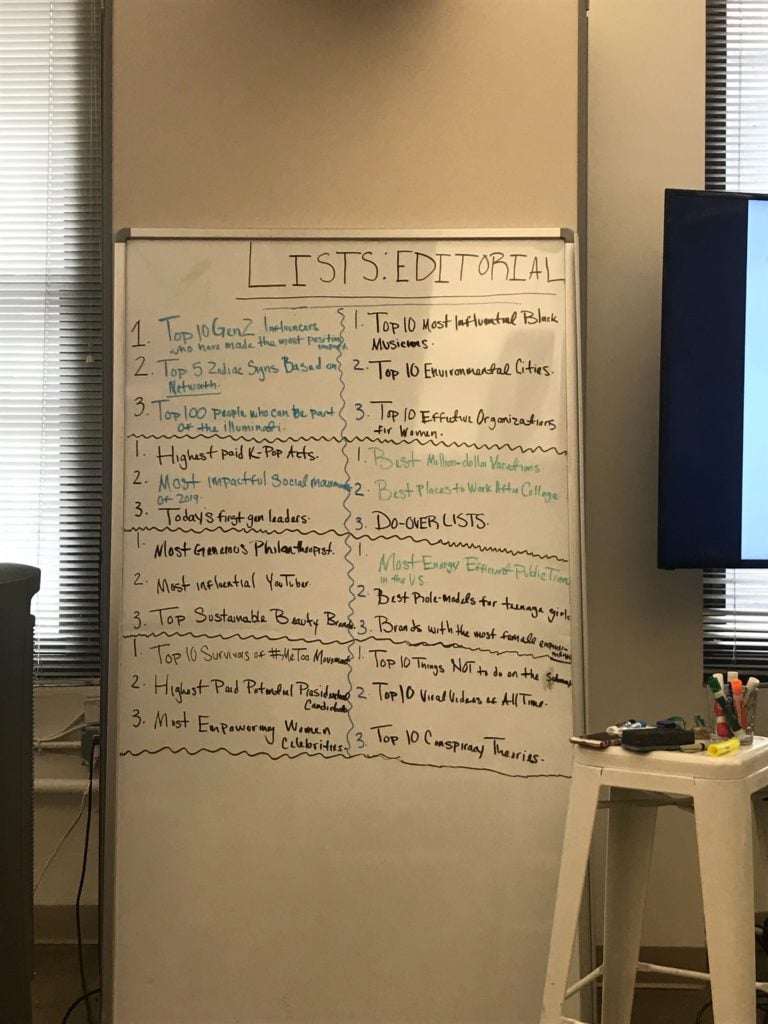 LISTS: EDITORIAL
1. Top 10 GenZ Influencers
who have made the most positive impact.
2. Top 5 Zodiac Signs Based on
Networth.
3. Top 100 people who can be part
of the illuminati.
1. Top 10 Most Influential Black
Musicians.
2. Top 10 Environmental Cities.
3. Top 10 Effective Organizations
for Women.
1. Highest paid K-Pop Acts.
2. Most impactful Social
of 2019.
3. Today's first gen leaders.
1. Best Million-dollar Vacations
2. Best Places to Work After College
3. DO-OVER LISTS.
1. Most Generous Philanthropist.
2. Most influential YouTuber
3. Top Sustainable Beauty Brands
1. Most Energy Efficient Public Trans
in the U.S.
2. Best Role-models for teenage girls
3. Brands with the most female
1. Top 10 Survivors of #MeToo Movement
2. Highest Paid Potential Presidential
Candidate
3. Most Empowering Women
Celebrities.
1. Top 10 Things NOT to do on the Subway
2. Top 10 Viral Videos of All Time.
3. Top 10 Conspiracy Theories.